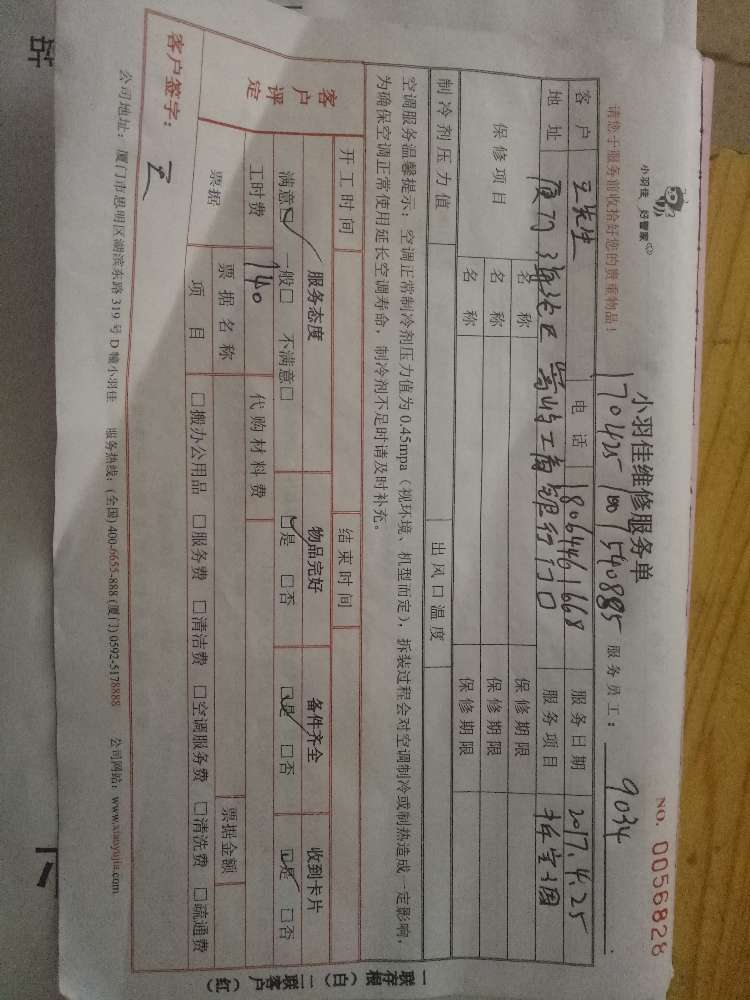 小羽佳 好管家
NO. 0056828
小羽佳维修服务单
请您于服务前收拾好您的贵重物品！
服务员工： 9034
客户 王先生 电话 18064461668 服务日期 2017.4.25
地址 厦门 工商银行门口 服务项目
保修项目 名称 保修期限
名称 保修期限
名称 保修期限
制冷剂压力值 出风口温度
空调服务温馨提示：空调正常制冷剂压力值为0.45mpa（视环境、机型而定），拆装过程会对空调制冷或制热造成一定影响，
为确保空调正常使用延长空调寿命，制冷剂不足时请及时补充。
开工时间 结束时间
客户评定 服务态度 物品完好 备件齐全 收到卡片
满意☑ 一般□ 不满意□ ☑是 □否 ☑是 □否 ☑是 □否
工时费 140 代购材料费
票据 票据名称 票据金额
项目 □搬办公用品 □服务费 □清洁费 □空调服务费 □清洗费 □疏通费
客户签字： 王
公司地址：厦门市思明区湖滨东路319号D幢小羽佳 服务热线：(全国)400-6655-888(厦门)0592-5178888 公司网站：www.xiaoyujia.com
一联存根（白） 二联客户（红）